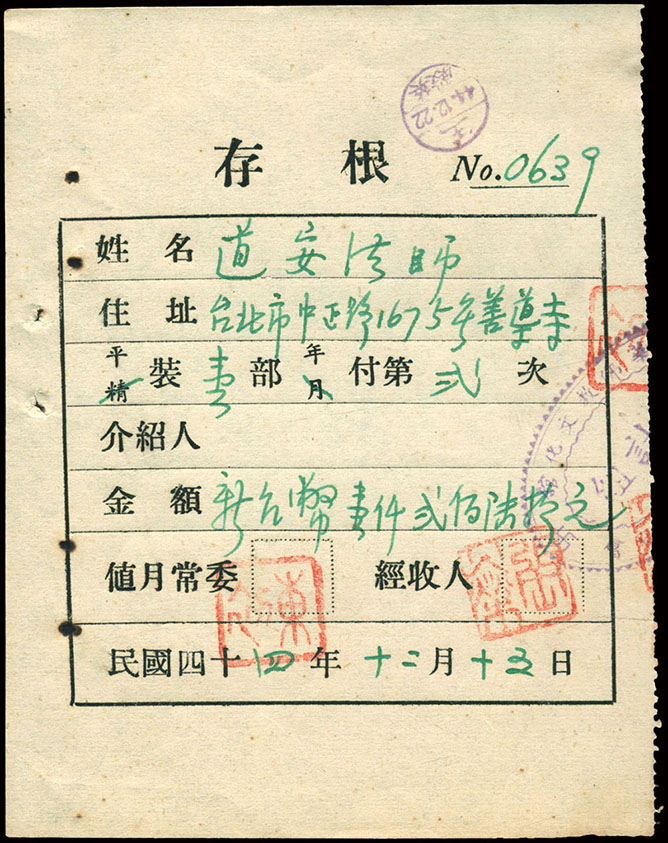 44.12.22
存根
No. 0639
姓名 道安法師
住址 台北市中正路1675号善導寺
平精裝壹部年月付第弍次
介紹人
金額 新台幣壹仟弍佰陸拾元
値月常委 經收人
民國四十四年十二月十五日